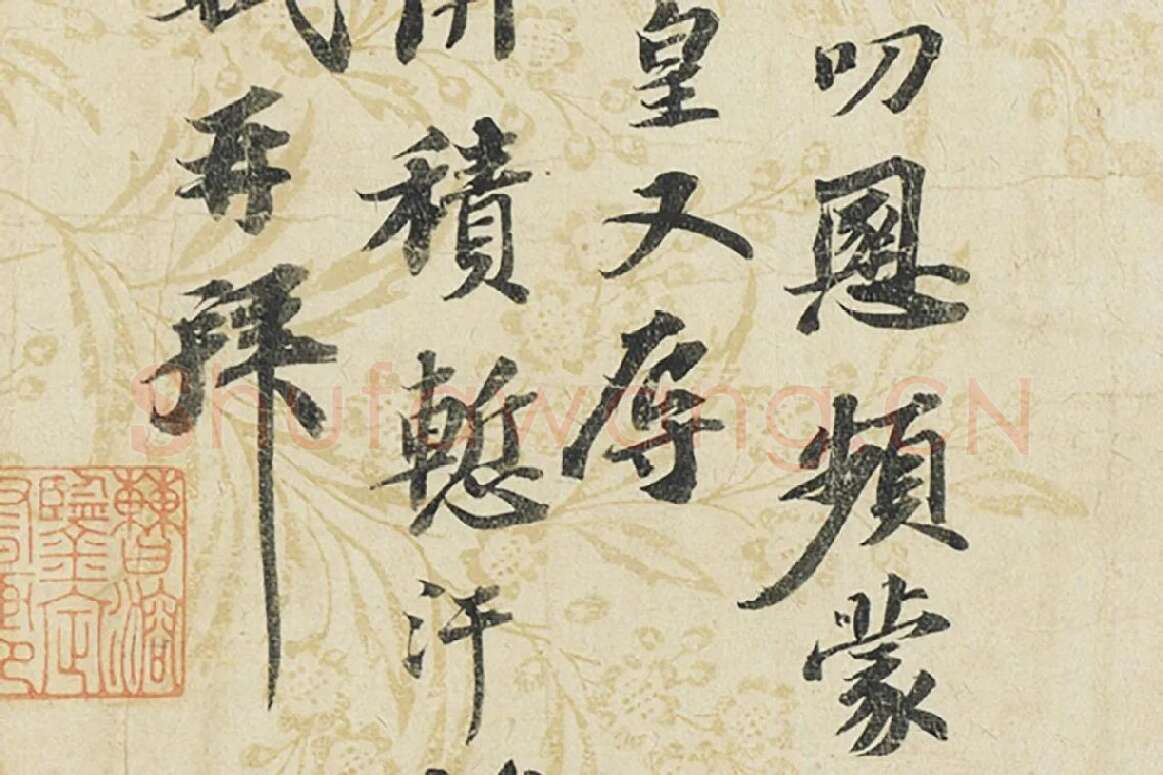 叨恩頻蒙
皇又辱
積慙汗
再拜
Shufawang.CN